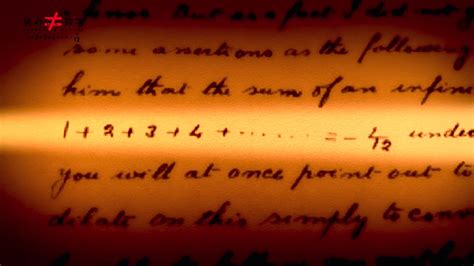 But as a fact I did not
some assertions as the following
him that the sum of an infin
1 + 2 + 3 + 4 + ...... = -1/12 unde
you will at once point out to
dilate on this simply to con